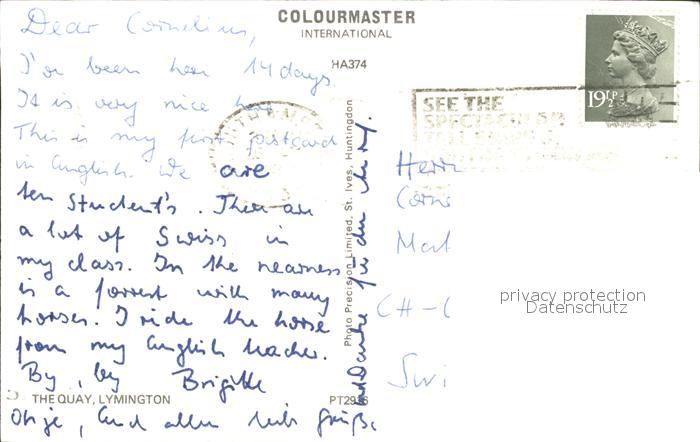 COLOURMASTER
INTERNATIONAL
HA374
Dear Cornelius,
I'v been here 14 days.
It is very nice here.
This is my first postcard
in English. We are
ten student's. There are
a lot of Swiss in
my class. In the nearness
is a forrest with many
horses. I ride the horse
from my English teacher.
By, by Brigitte
THE QUAY, LYMINGTON
PT2936
und allen
Danke für den
Photo Precision Limited, St. Ives, Huntingdon
19½P
SEE THE
SPECTACULAR
Herrn
Corne
CH-
Swi
privacy protection
Datenschutz